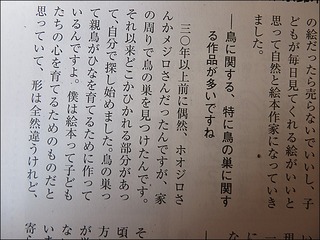 の絵だったら売らないでいいし、子
どもが毎日見てくれる絵がいいと
思って自然と絵本作家になっていき
ました。
―鳥に関する、特に鳥の巣に関す
る作品が多いですね
三〇年以上前に偶然、ホオジロさ
んかメジロさんだったんですが、家
の周りで鳥の巣を見つけたんです。
それ以来どこかひかれる部分があっ
て、自分で探し始めました。鳥の巣っ
て親鳥がひなを育てるために作って
いるんですよ。僕は絵本って子ども
たちの心を育てるためのものだと
思っていて、形は全然違うけれど、